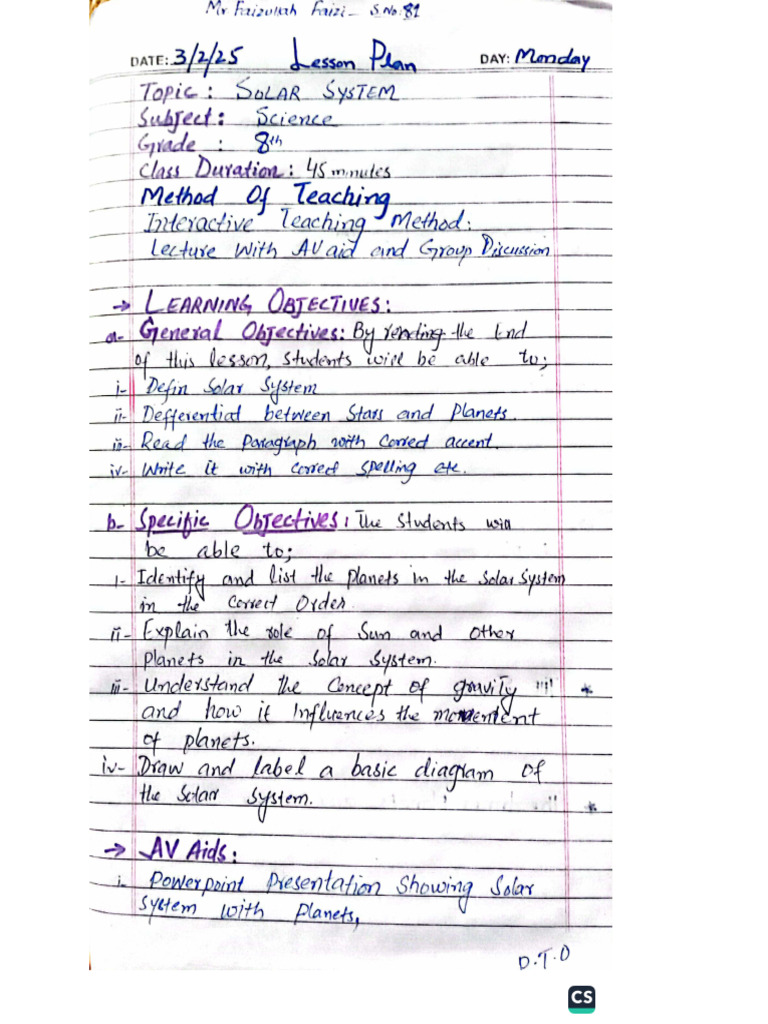 Mr Faizullah Faizi - S.No. 81
DATE: 3/2/25 Lesson Plan DAY: Monday
Topic: SOLAR SYSTEM
Subject: Science
Grade : 8th
Class Duration: 45 minutes
Method Of Teaching
Interactive Teaching Method:
Lecture with AV aid and Group Discussion
→ LEARNING OBJECTIVES:
a- General Objectives: By the End
of this lesson, students will be able to;
i- Defin Solar System
ii- Defferential between Stars and Planets.
iii- Read the Paragraph with Correct accent.
iv- Write it with correct spelling etc.
b- Specific Objectives: The Students will
be able to;
i- Identify and list the planets in the Solar System
in the Correct Order.
ii- Explain the role of Sun and other
Planets in the Solar System.
iii- Understand the Concept of gravity "i" *
and how it Influences the movement
of planets.
iv- Draw and label a basic diagram of
the Solar System. " *
→ AV Aids:
i- Powerpoint Presentation Showing Solar
System with Planets,
P.T.O
CS